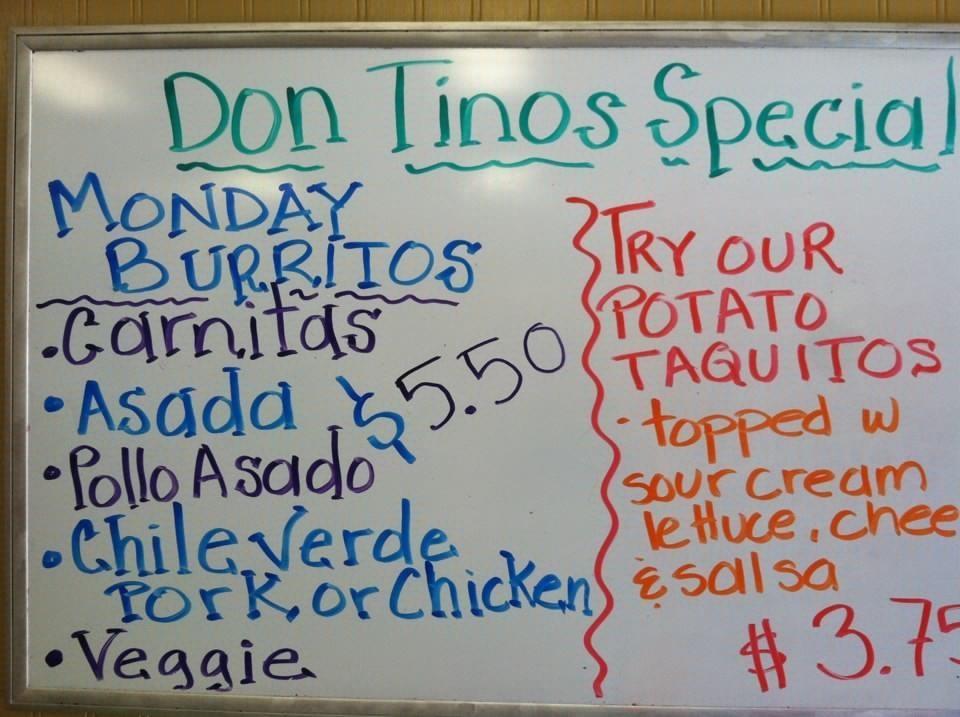 Don Tinos Special
MONDAY
BURRITOS
.Carnitas
• Asada $5.50
• Pollo Asado
• Chile Verde
Pork or Chicken
• Veggie
TRY OUR
POTATO
TAQUITOS
· topped w
sour cream
lettuce, chee
& salsa
$3.75